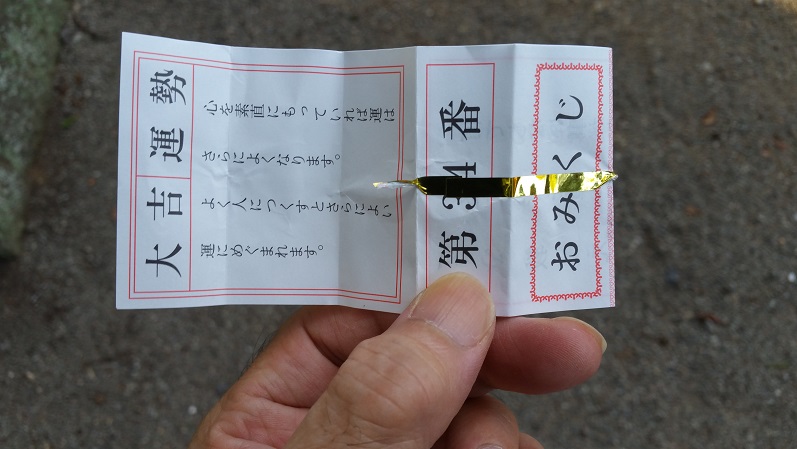 大吉 運勢
心を素直にもっていれば運は
さらによくなります。
よく人につくすとさらによい
運にめぐまれます。
第34番
おみくじ